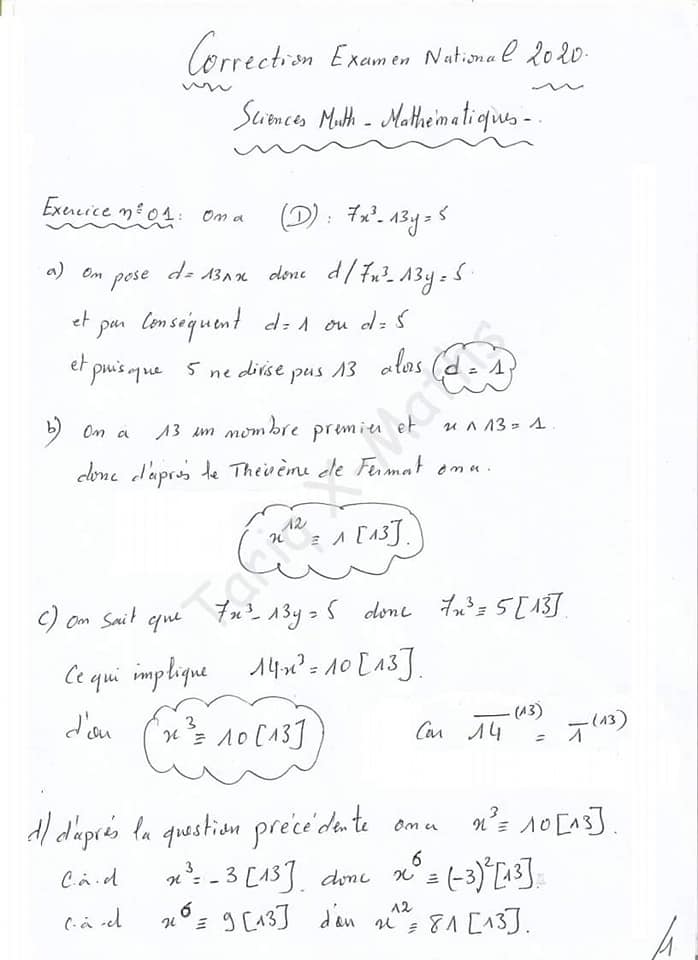 Correction Examen National 2020.
Sciences Math - Mathématiques -.
Exercice n°01: On a (D): 7x³-13y=5
a) On pose d=13∧x donc d/7x³-13y=5.
et par conséquent d=1 ou d=5
et puisque 5 ne divise pas 13 alors d=1
b) On a 13 un nombre premier et x∧13=1.
donc d'après le Théorème de Fermat on a.
x¹² ≡ 1 [13].
c) On sait que 7x³-13y=5 donc 7x³≡5[13].
Ce qui implique 14x³≡10[13].
d'où x³≡10[13] Car 14̅⁽¹³⁾ = 1̅⁽¹³⁾
d/ d'après la question précédente on a x³≡10[13].
c.à.d x³≡-3[13]. donc x⁶≡(-3)²[13].
c.à.d x⁶≡9[13] d'où x¹²≡81[13].
1
Tariq X Maths